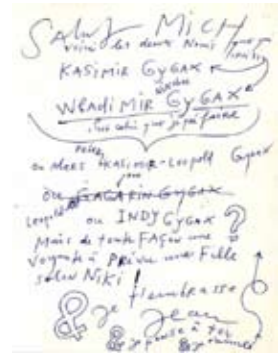 Salut MICH
voici les deux Noms que
KASIMIR GYGAX
WLADIMIR GYGAX
c'est celui que je préfère
ou alors KASIMIR-Leopold Gygax
ou GAGARIN GYGAX
Leopold ou INDY GYGAX ?
Mais de toute FAÇON une
voyante à PRÉVU une Fille
selon NiKi !
& je t'embrasse
Jean
& je pense à toi
& je